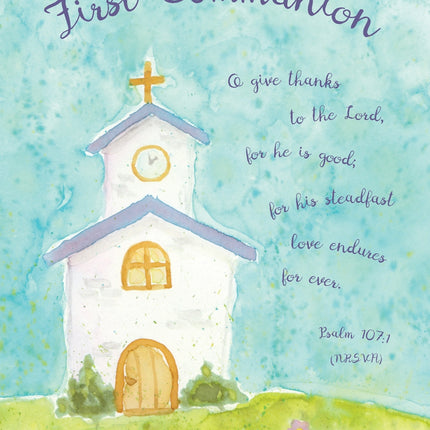 First Communion
O give thanks
to the Lord,
for he is good;
for his steadfast
love endures
for ever.
Psalm 107:1
(NRSVA)